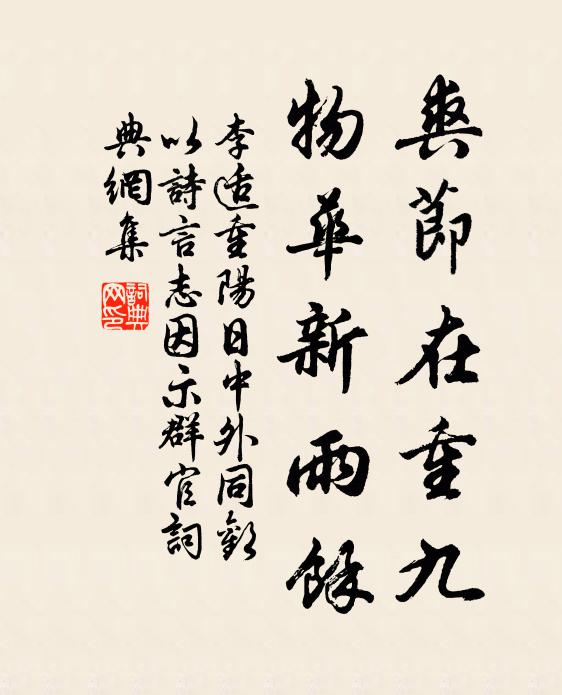 爽節在重九
物華新雨餘
李适重陽日中外同歡
以詩言志因示群官詞
典網集
詞典網印